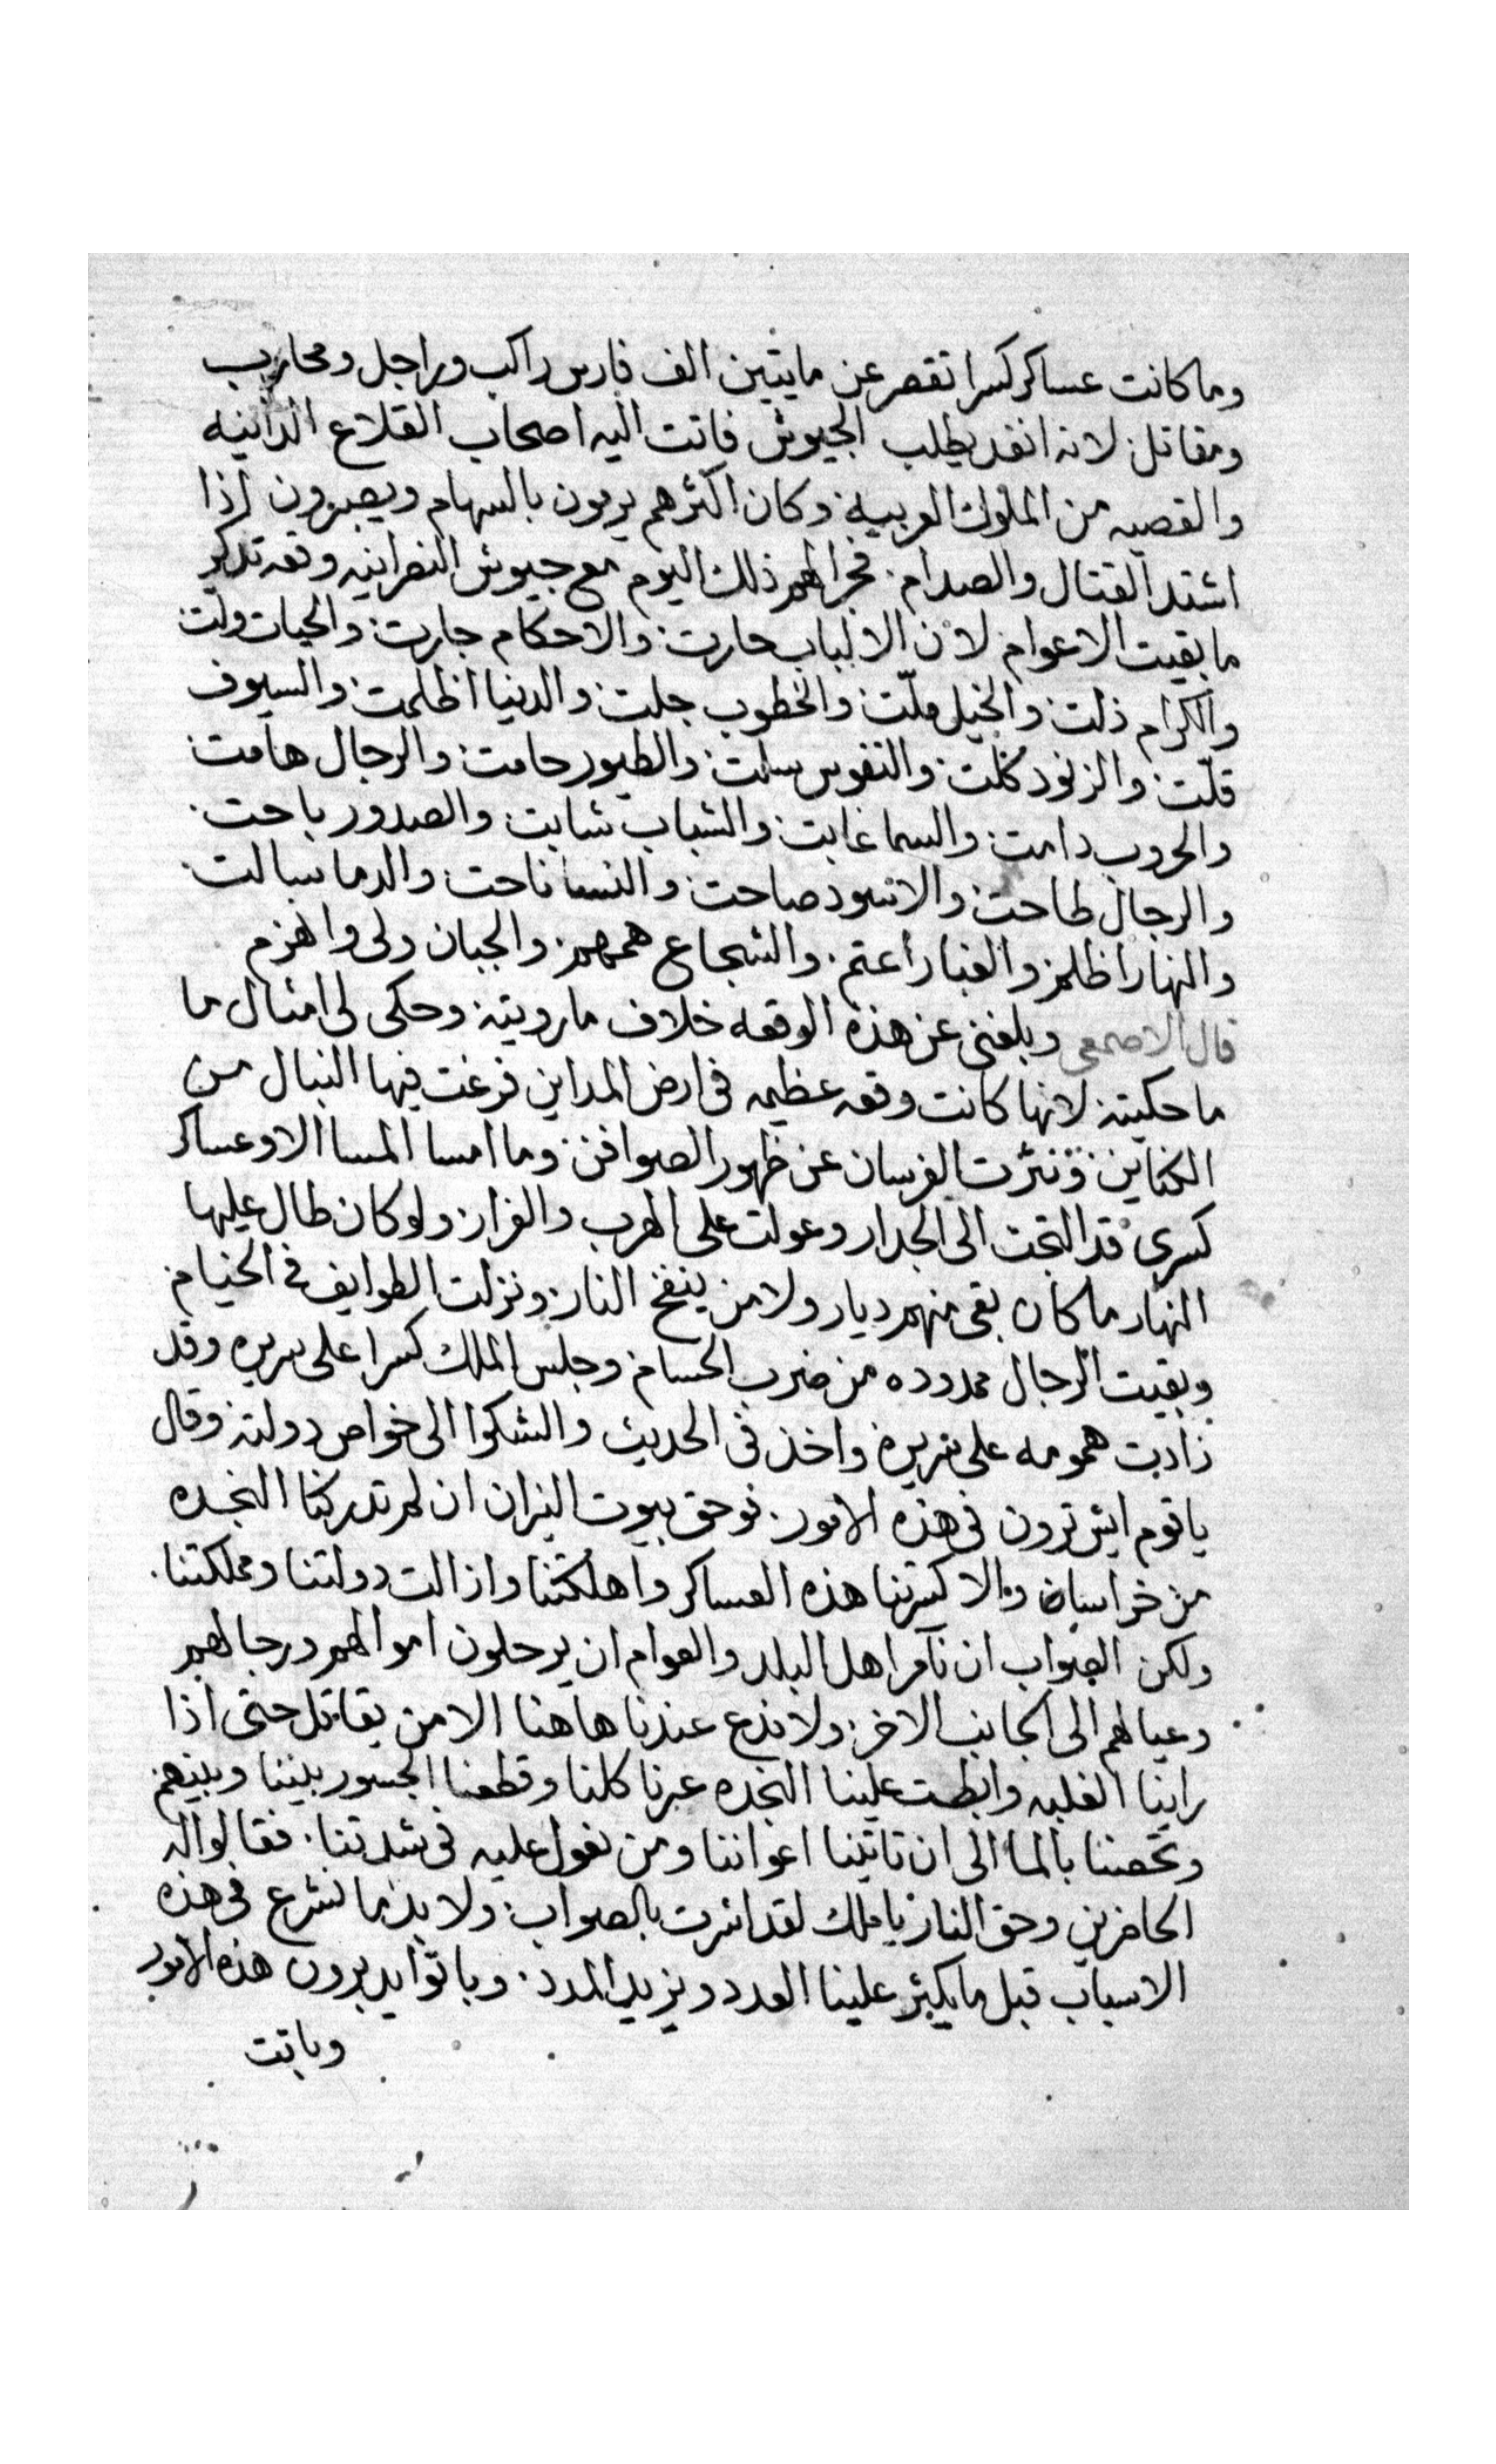 وما كانت عساكر كسرا تقصر عن مايتين الف فارس راكب وراجل ومحارب
ومقاتل لانه انفد يطلب الجيوش فاتت اليه اصحاب القلاع الدانيه
والقصيه من الملوك العربيه وكان اكثرهم يرمون بالسهام ويصبرون اذا
اشتد القتال والصدام فجرا لهم ذلك اليوم مع جيوش النصرانيه وقعه تذكر
ما بقيت الاعوام لان الالباب حارت والاحكام جارت والحيات ولت
والكرام ذلت والخيل ملّت والخطوب جلت والدنيا اظلمت والسيوف
فلّت والزنود كلّت والنفوس سلت والطيور حامت والرجال هامت
والحروب دامت والسما غابت والشباب شابت والصدور باحت
والرجال طاحت والاسود صاحت والنسا ناحت والدما سالت
والنهار اظلم والغبار اعتم والشجاع همهم والجبان ولى وانهزم
قال الاصمعي وبلغني عن هذه الوقعه خلاف ما رويته وحكى لي امثال ما
ما حكيته لانها كانت وقعه عظيمه في ارض المداين فرغت فيها النبال من
الكناين ونثرت الفرسان عن ظهور الصوافن وما امسا المسا الا وعساكر
كسرى قد التجت الى الجدار وعولت على الهرب والفرار ولو كان طال عليها
النهار ما كان بقى منهم ديار ولا من ينفخ النار ونزلت الطوايف في الخيام
وبقيت الرجال ممدوده من ضرب الحسام وجلس الملك كسرا على سريره وقد
زادت همومه على سريره واخذ في الحديث والشكوا الى خواص دولته وقال
يا قوم ايش ترون في هذه الامور فوحق بيوت النيران ان لم تدركنا النجده
من خراسان والا كسرتنا هذه العساكر واهلكتنا وازالت دولتنا ومملكتنا
ولكن الصواب ان نآمر اهل البلد والعوام ان يرحلون اموالهم ورجالهم
وعيالهم الى الجانب الاخر ولا ندع عندنا هاهنا الا من يقاتل حتى اذا
راينا الغلبه وابطت علينا النجده عبرنا كلنا وقطعنا الجسور بيننا وبينهم
وتحصننا بالما الى ان تاتينا اعواننا ومن نعول عليه في شدتنا فقالوا له
الحاضرين وحق النار يا ملك لقد اشرت بالصواب ولا بد ما نشرع في هذه
الاسباب قبل ما يكثر علينا العدد ويزيد المدد وباتوا يدبرون هذه الامور
وباتت